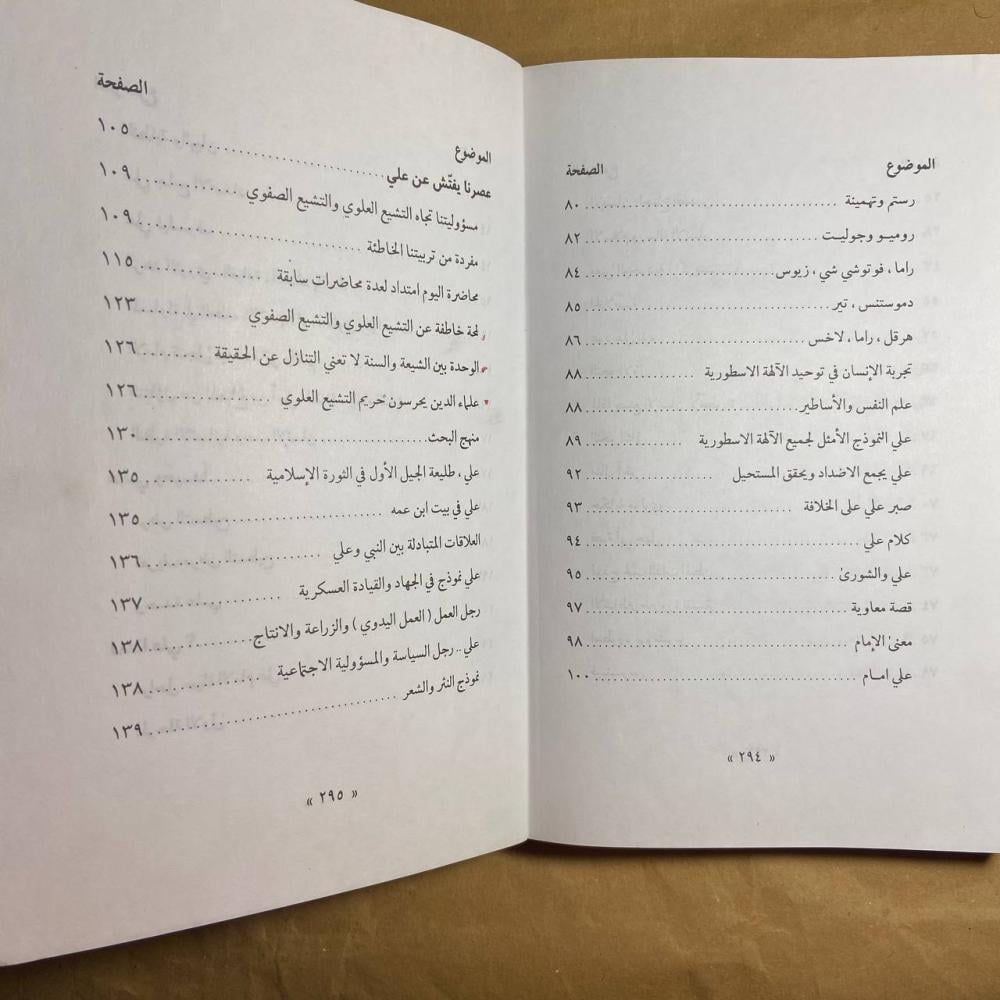 الموضوع الصفحة
رستم وتهمينة .................... ٨٠
روميو وجوليت .................... ٨٢
راما ، فوتوشي شي ، زيوس .................... ٨٤
دموستنس ، تير .................... ٨٥
هرقل ، راما ، لاخس .................... ٨٦
تجربة الإنسان في توحيد الآلهة الاسطورية .................... ٨٨
علم النفس والأساطير .................... ٨٨
علي النموذج الأمثل لجميع الآلهة الاسطورية .................... ٨٩
علي يجمع الاضداد ويحقق المستحيل .................... ٩٢
صبر علي على الخلافة .................... ٩٣
كلام علي .................... ٩٤
علي والشورىٰ .................... ٩٥
قصة معاوية .................... ٩٧
معنىٰ الإمام .................... ٩٨
علي امام .................... ١٠٠
« ٢٩٤ »
الموضوع الصفحة
عصرنا يفتّش عن علي .................... ١٠٥
مسؤوليتنا تجاه التشيع العلوي والتشيع الصفوي .................... ١٠٩
مفردة من تربيتنا الخاطئة .................... ١٠٩
محاضرة اليوم امتداد لعدة محاضرات سابقة .................... ١١٥
لمحة خاطفة عن التشيع العلوي والتشيع الصفوي .................... ١٢٣
الوحدة بين الشيعة والسنة لا تعني التنازل عن الحقيقة .................... ١٢٦
علماء الدين يحرسون حريم التشيع العلوي .................... ١٢٦
منهج البحث .................... ١٣٠
علي ، طليعة الجيل الأول في الثورة الإسلامية .................... ١٣٥
علي في بيت ابن عمه .................... ١٣٥
العلاقات المتبادلة بين النبي وعلي .................... ١٣٦
علي نموذج في الجهاد والقيادة العسكرية .................... ١٣٧
رجل العمل ( العمل اليدوي ) والزراعة والانتاج .................... ١٣٨
علي .. رجل السياسة والمسؤولية الاجتماعية .................... ١٣٨
نموذج النثر والشعر .................... ١٣٩
« ٢٩٥ »